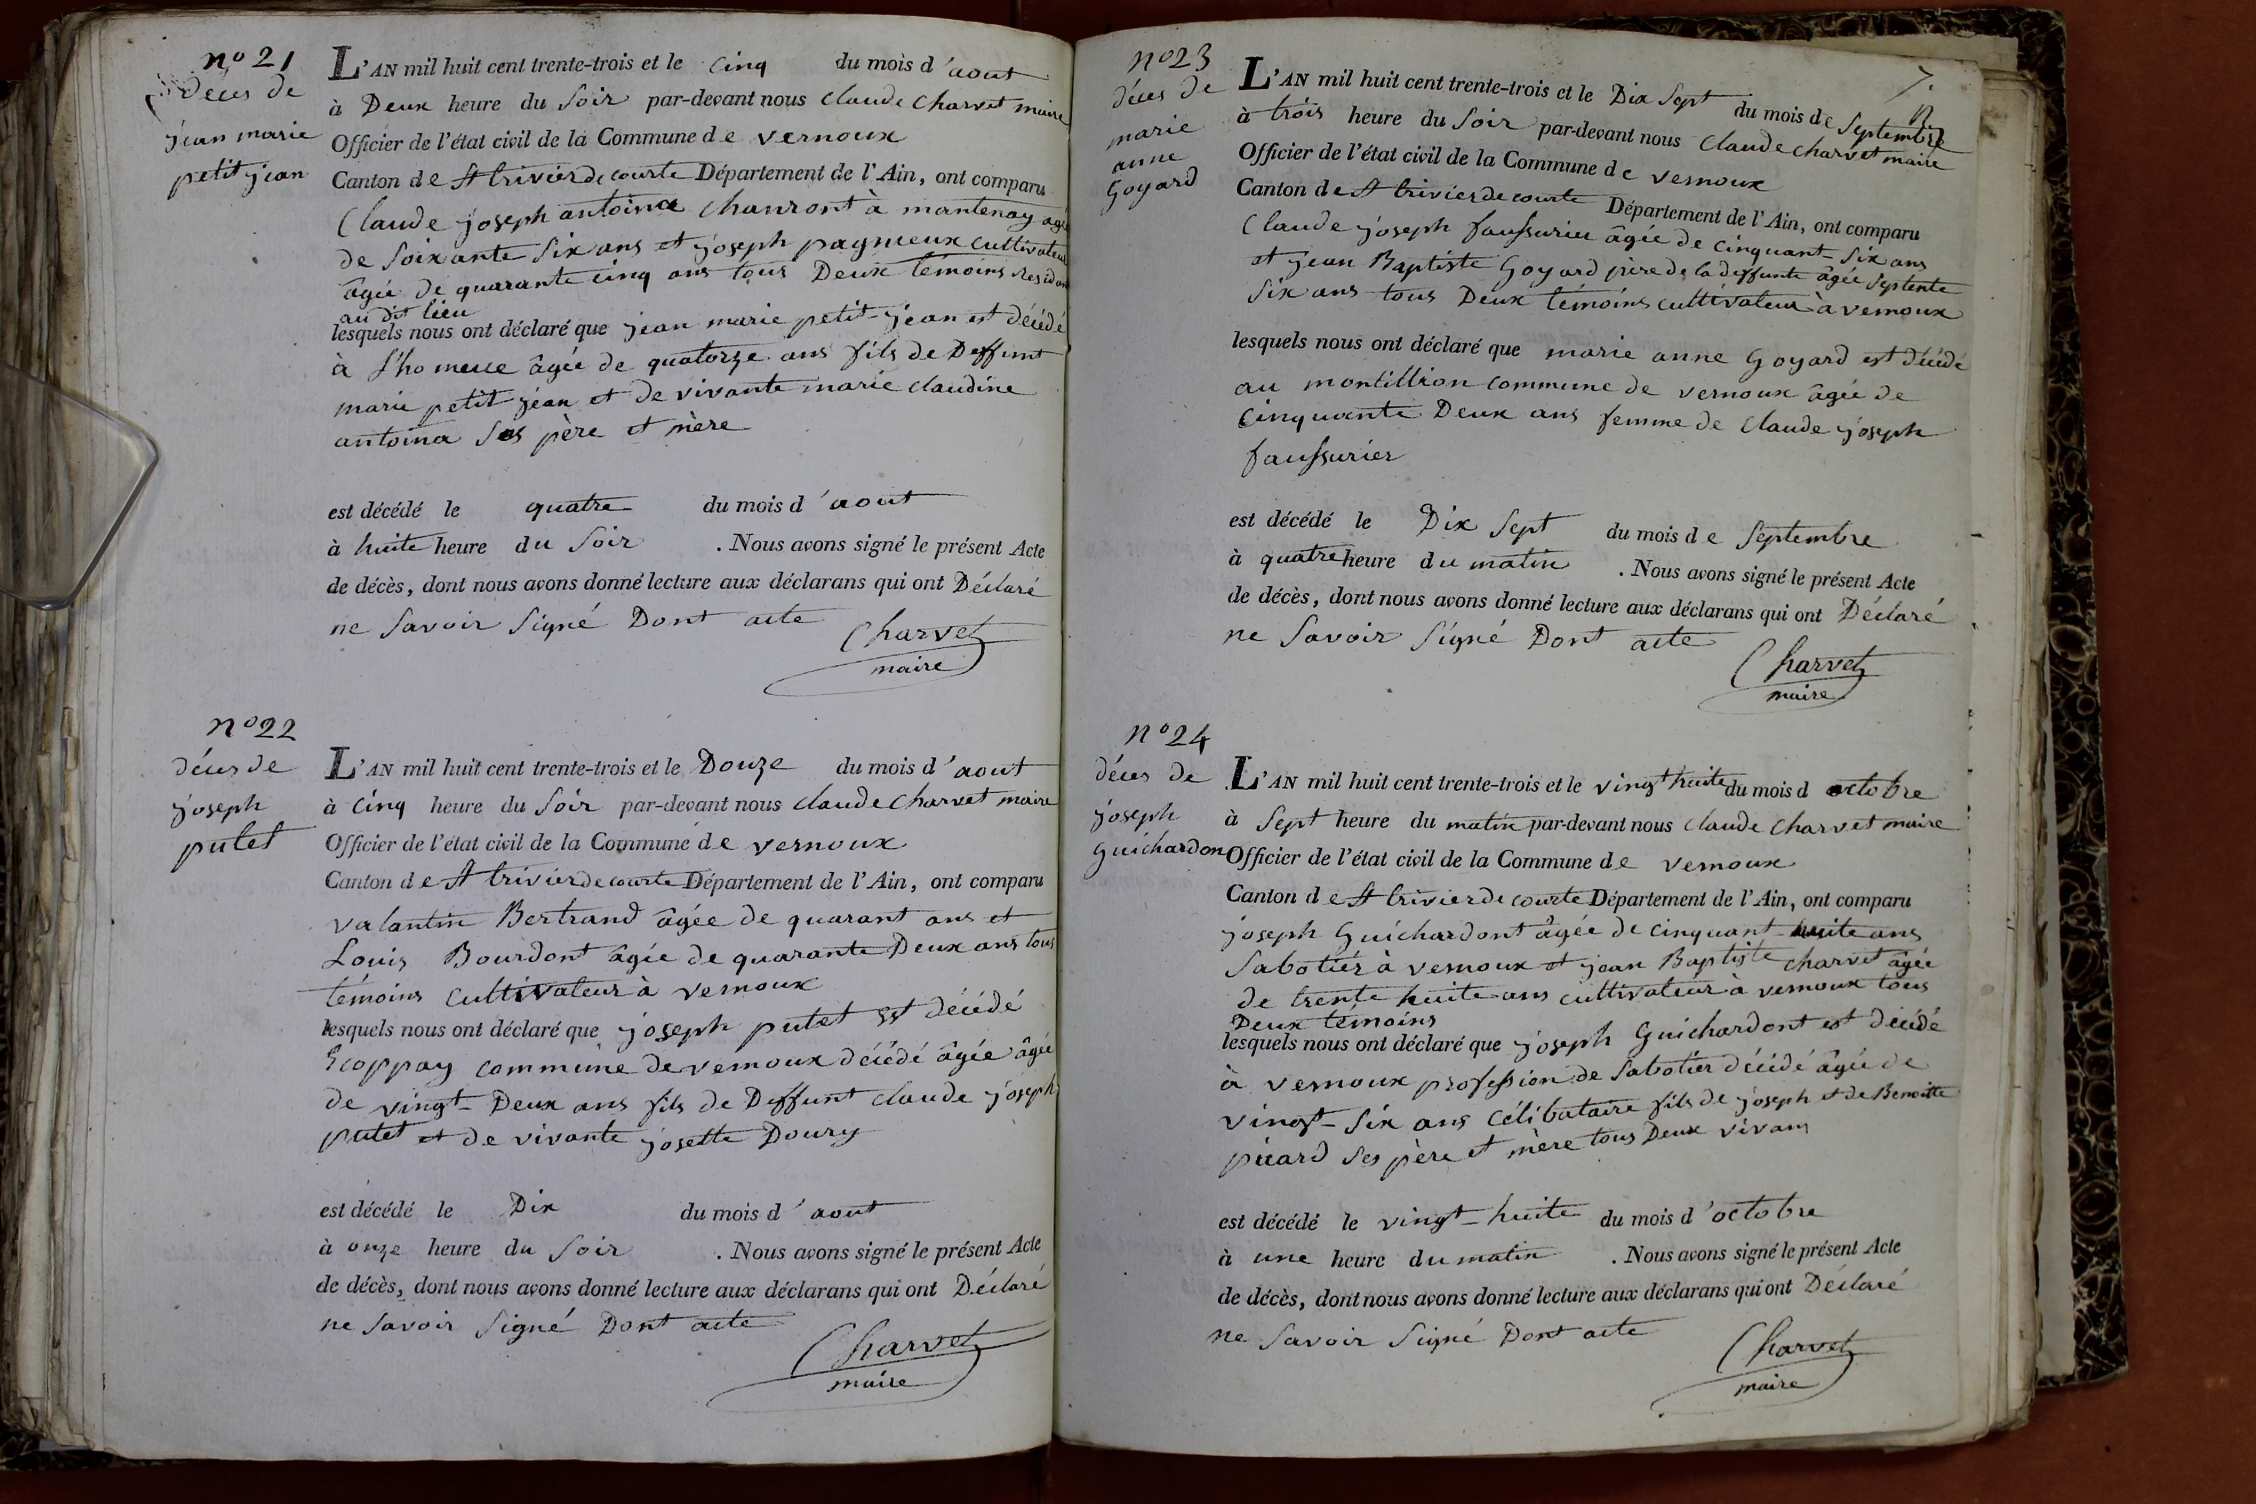 nº 21
décès de
jean marie
petit jean
L'AN mil huit cent trente-trois et le cinq du mois d'aout
à Deux heure du soir par-devant nous claude charvet maire
Officier de l'état civil de la Commune de vernoux
Canton de St trivier de courte Département de l'Ain, ont comparu
Claude joseph antoina à mantenay agé
de soixante six ans et joseph pagneux cultivateur
âgée de quarante cinq ans tous Deux témoins residant
au dit lieu
lesquels nous ont déclaré que jean marie petit-jean est décédé
à âgée de quatorze ans fils de Deffunt
marie petit jean et de vivante marie claudine
antoina ses père et mère
est décédé le quatre du mois d'aout
à huite heure du soir . Nous avons signé le présent Acte
de décès, dont nous avons donné lecture aux déclarans qui ont Déclaré
ne savoir signé Dont acte
Charvet
maire
nº 22
décès de
joseph
putet
L'AN mil huit cent trente-trois et le Douze du mois d'aout
à cinq heure du soir par-devant nous claude charvet maire
Officier de l'état civil de la Commune de vernoux
Canton de St trivier de courte Département de l'Ain, ont comparu
valantin Bertrand âgée de quarant ans et
Louis Bourdont âgée de quarante Deux ans tous
témoins cultivateur à vernoux
lesquels nous ont déclaré que joseph putet est décédé
commune de vernoux décédé âgée âgée
de vingt-Deux ans fils de Deffunt claude joseph
putet et de vivante josette Doury
est décédé le Dix du mois d'aout
à onze heure du soir . Nous avons signé le présent Acte
de décès, dont nous avons donné lecture aux déclarans qui ont Déclaré
ne savoir signé Dont acte
Charvet
maire
7.
nº 23
décès de
marie
anne
Goyard
L'AN mil huit cent trente-trois et le Dix sept du mois de septembre
à trois heure du soir par-devant nous claude charvet maire
Officier de l'état civil de la Commune de vernoux
Canton de St trivier de courte Département de l'Ain, ont comparu
Claude joseph faussurier âgée de cinquant-six ans
et jean Baptiste Goyard père de la deffunte âgée septente
six ans tous Deux témoins cultivateur à vernoux
lesquels nous ont déclaré que marie anne Goyard est décédé
au montillion commune de vernoux âgée de
cinquante Deux ans femme de claude joseph
faussurier
est décédé le Dix sept du mois de septembre
à quatre heure du matin . Nous avons signé le présent Acte
de décès, dont nous avons donné lecture aux déclarans qui ont Déclaré
ne savoir signé Dont acte
Charvet
maire
nº 24
décès de
joseph
Guichardon
L'AN mil huit cent trente-trois et le vingt huite du mois d octobre
à sept heure du matin par-devant nous claude charvet maire
Officier de l'état civil de la Commune de vernoux
Canton de St trivier de courte Département de l'Ain, ont comparu
joseph Guichardont âgée de cinquant-huite ans
sabotier à vernoux et jean Baptiste charvet âgée
de trente huite ans cultivateur à vernoux tous
Deux témoins
lesquels nous ont déclaré que joseph Guichardont est décédé
à vernoux profession de sabotier décédé âgée de
vingt-six ans célibataire fils de joseph et de Benoitte
picard ses père et mère tous Deux vivans
est décédé le vingt-huite du mois d'octobre
à une heure du matin . Nous avons signé le présent Acte
de décès, dont nous avons donné lecture aux déclarans qui ont Déclaré
ne savoir signé Dont acte
Charvet
maire